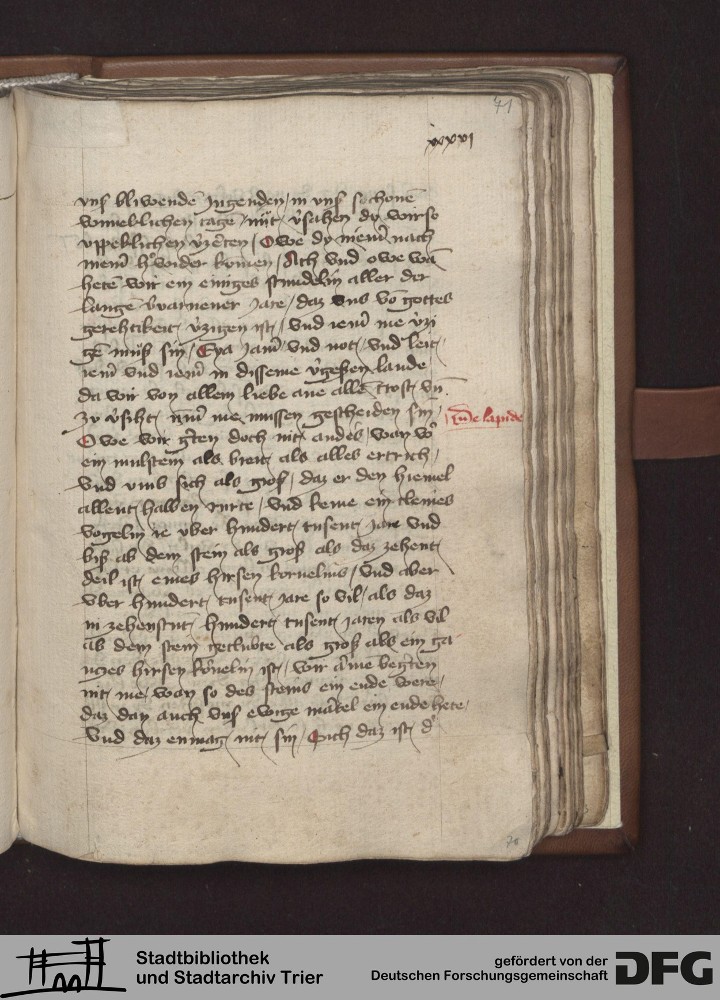 71
xxxvi
vnß bliwendē Jugenden / in vnß schonē
wunneklichen tagē / nüt v̾sahen dz wir so
vppeklichen v̾zertē / Owe dz niem̄ nach
niem̄ h̾ wider komen / Ach vnd owe wā
hetē wir ein einiges stundelin aller der
langē v̾varnener Jare / daz vns vō gottes
gerehtikeit v̾zigen ist / vnd iem̄ me v̾zi
gē muß sin / Eya Jam̄ vnd not / vnd leit /
iem̄ vnd iem̄ in disseme v̾geßen lande
da wir von allem liebe ane allē trost vn̄
zu v̾siht / iem̄ me mussen gescheiden sin /
Owe wir g̾tē doch nit and̾s / wan w̾
ein mulstein als breit als alles ertrich /
vnd vmb sich als groß / daz er den hiemel
allent halben rurte / vnd keme ein cleines
vogelin ie vber hundert tusent jare vnd
biß ab dem stein als groß als daz zehent
deil ist eines hirsen kornelins / vnd aber
vber hundert tusent jare so vil / als daz
in zehenstunt hundert tusent jaren als vil
ab dem stein geclubte als groß als ein ga
nczes hirsen kōrnelin ist / wir arme beg̾tē
nit me / wan so des steins ein ende were /
daz dan auch vnß ewige martel ein ende hete /
vnd daz enmag nit sin / Sich daz ist d̾
de lapide
Stadtbibliothek
und Stadtarchiv Trier
gefördert von der
Deutschen Forschungsgemeinschaft
DFG